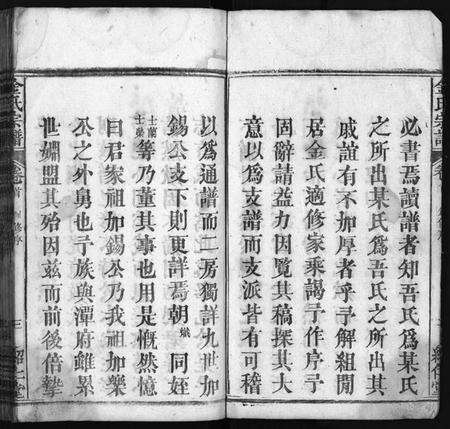 必書焉讀譜者知吾氏爲某氏
之所出某氏爲吾氏之所出
戚誼有不加厚者乎予解組閒
居金氏適修家乘謁予作序予
固辭請益力因覽其稿探其大
意以爲支譜而支派皆有可稽
以爲通譜而二房獨詳九世加
錫公支下則更詳焉朝 同姪
士蘭
士榮等乃董其事也用是慨然憶
曰君家祖加錫公乃我祖加樂
公之外舅也予族與潭府雖累
世婣盟其殆因兹而前後倍摯
金氏宗譜
卷首
修序
三